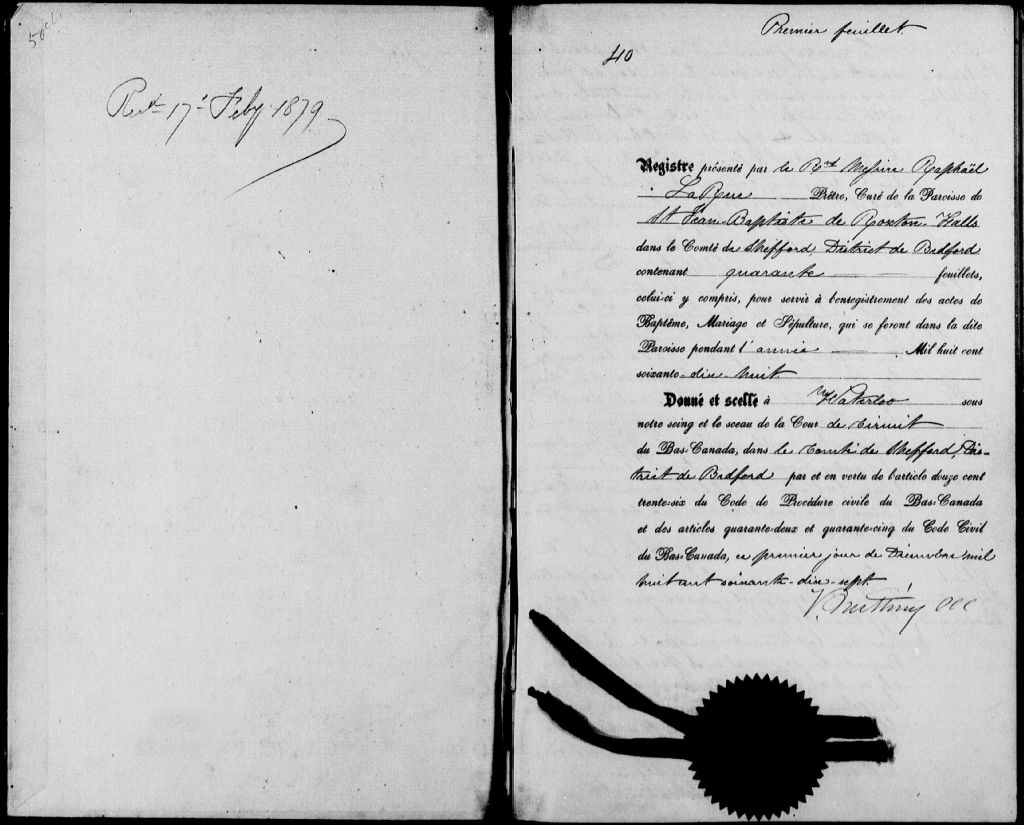 Rec. 17th Feby 1879
Premier feuillet
40
Registre présenté par le Rvd Messire Raphaël
LaRue Prêtre, Curé de la Paroisse de
St Jean-Baptiste de Roxton Falls
dans le Comté de Shefford, District de Bedford
contenant quarante feuillets,
celui-ci y compris, pour servir à l'enregistrement des actes de
Baptême, Mariage et Sépulture, qui se feront dans la dite
Paroisse pendant l'année Mil huit cent
soixante-dix-huit.
Donné et scellé à Waterloo sous
notre seing et le sceau de la Cour de Circuit
du Bas-Canada, dans le Comté de Shefford, Dis-
trict de Bedford par et en vertu de l'article douze cent
trente-six du Code de Procédure civile du Bas-Canada
et des articles quarante-deux et quarante-cinq du Code Civil
du Bas-Canada, ce premier jour de Décembre mil
huit cent soixante-dix-sept.
CCC